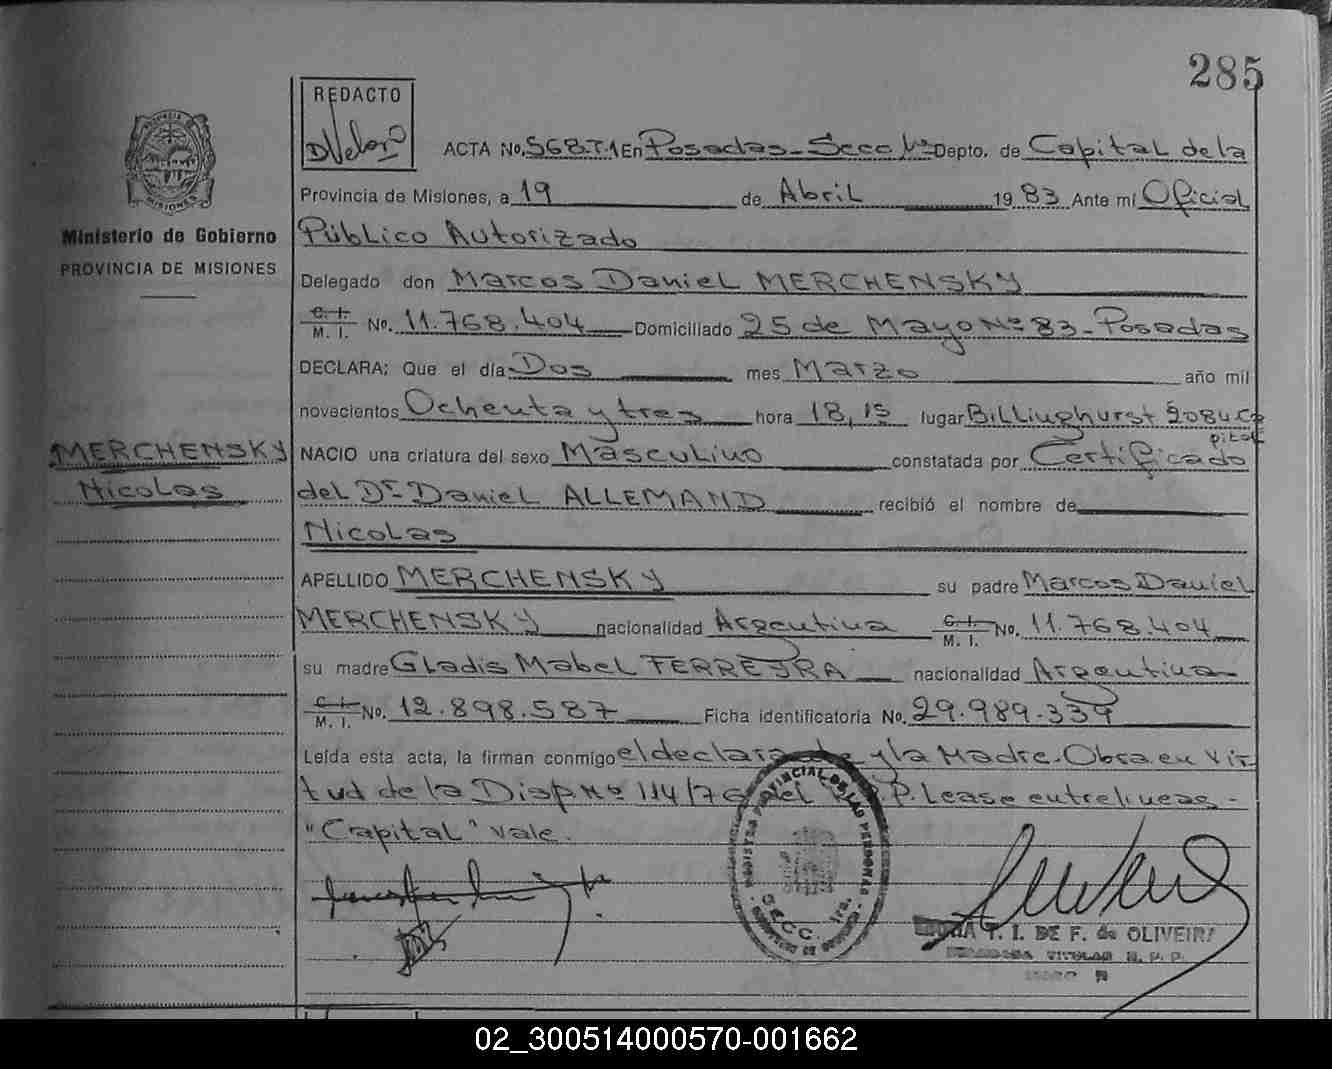 285
REDACTO
ACTA No. 568.T.1 En Posadas - Secc 1ª Depto. de Capital de la
Provincia de Misiones, a 19 de Abril 1983 Ante mí Oficial
Ministerio de Gobierno
PROVINCIA DE MISIONES
Público Autorizado
Delegado don Marcos Daniel MERCHENSKY
C. I.
M. I. No. 11.768.404 Domiciliado 25 de Mayo Nº 83 - Posadas
DECLARA: Que el día Dos mes Marzo año mil
novecientos Ochenta y tres hora 18,15 lugar Billinghurst 2084 Ca
pital
MERCHENSKY
Nicolas
NACIO una criatura del sexo Masculino constatada por Certificado
del Dr. Daniel ALLEMAND recibió el nombre de
Nicolas
APELLIDO MERCHENSKY su padre Marcos Daniel
MERCHENSKY nacionalidad Argentina C. I. M. I. No. 11.768.404
su madre Gladis Mabel FERREYRA nacionalidad Argentina
C. I.
M. I. No. 12.898.587 Ficha identificatoria No. 29.989.339
Leída esta acta, la firman conmigo el declarante y la Madre. Obra en vir
tud de la Disp Nº 114/76 del P. Lease entrelineas -
"Capital" vale.
REGISTRO PROVINCIAL DE LAS PERSONAS
SECC. 1ra.
T. I. DE F. de OLIVEIRA
TITULAR R. P. P.
02_300514000570-001662